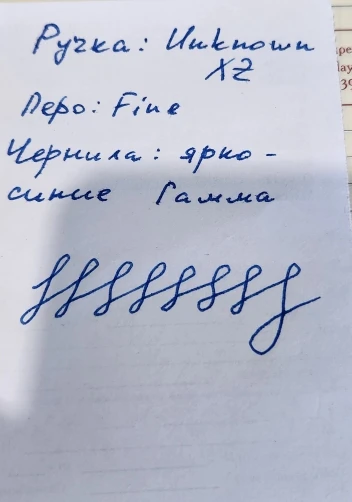 Ручка: Unknown
XZ
Перо: Fine
Чернила: ярко-
синие Гамма